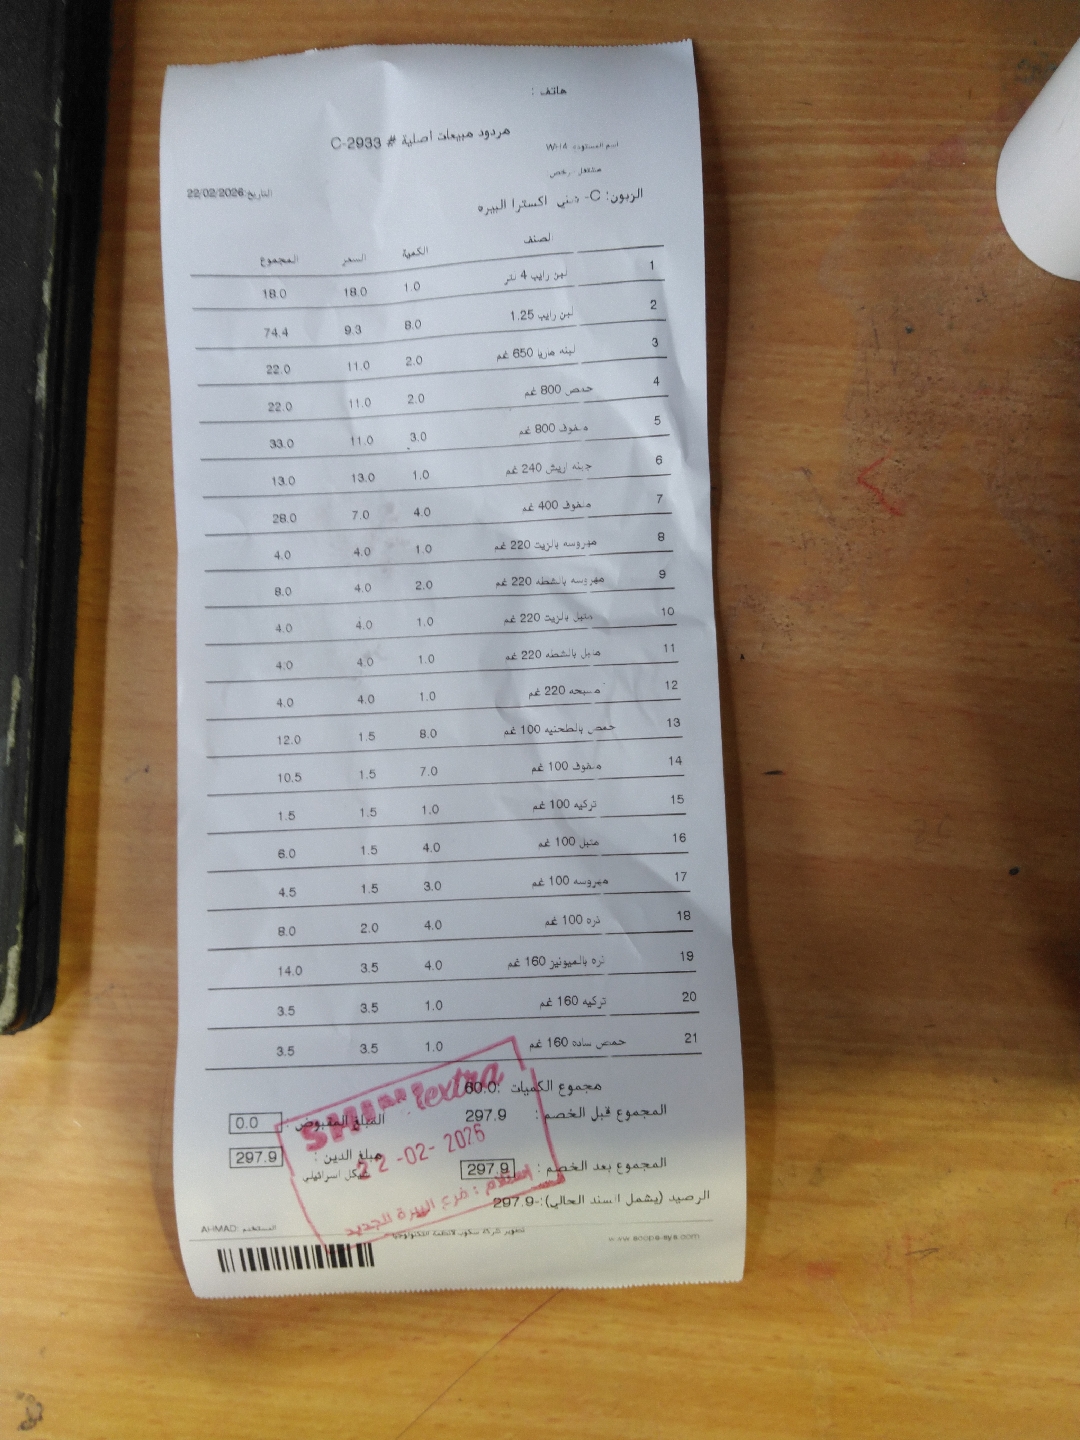 هاتف :
مردود مبيعات اصلية # C-2933
اسم المستودع: WH4
التاريخ: 22/02/2026
الزبون: C- شني اكسترا البيره
الصنف الكمية السعر المجموع
1 لبن رايب 4 لتر 1.0 18.0 18.0
2 لبن رايب 1.25 8.0 9.3 74.4
3 لبنه ماريا 650 غم 2.0 11.0 22.0
4 حمص 800 غم 2.0 11.0 22.0
5 ملفوف 800 غم 3.0 11.0 33.0
6 جبنه اريش 240 غم 1.0 13.0 13.0
7 ملفوف 400 غم 4.0 7.0 28.0
8 مهروسه بالزيت 220 غم 1.0 4.0 4.0
9 مهروسه بالشطه 220 غم 2.0 4.0 8.0
10 متبل بالزيت 220 غم 1.0 4.0 4.0
11 متبل بالشطه 220 غم 1.0 4.0 4.0
12 مسبحه 220 غم 1.0 4.0 4.0
13 حمص بالطحنيه 100 غم 8.0 1.5 12.0
14 ملفوف 100 غم 7.0 1.5 10.5
15 تركيه 100 غم 1.0 1.5 1.5
16 متبل 100 غم 4.0 1.5 6.0
17 مهروسه 100 غم 3.0 1.5 4.5
18 ذره 100 غم 4.0 2.0 8.0
19 ذره بالميونيز 160 غم 4.0 3.5 14.0
20 تركيه 160 غم 1.0 3.5 3.5
21 حمص ساده 160 غم 1.0 3.5 3.5
مجموع الكميات :60.0
المجموع قبل الخصم : 297.9 المبلغ المقبوض : 0.0
المجموع بعد الخصم : 297.9 مبلغ الدين : 297.9
شيكل اسرائيلي
الرصيد (يشمل السند الحالي):-297.9
extra
22-02-2026
استلام : فرع البيرة الجديد
المستخدم :AHMAD
تطوير شركة سكوب لانظمة التكنولوجيا
www.scope-sys.com